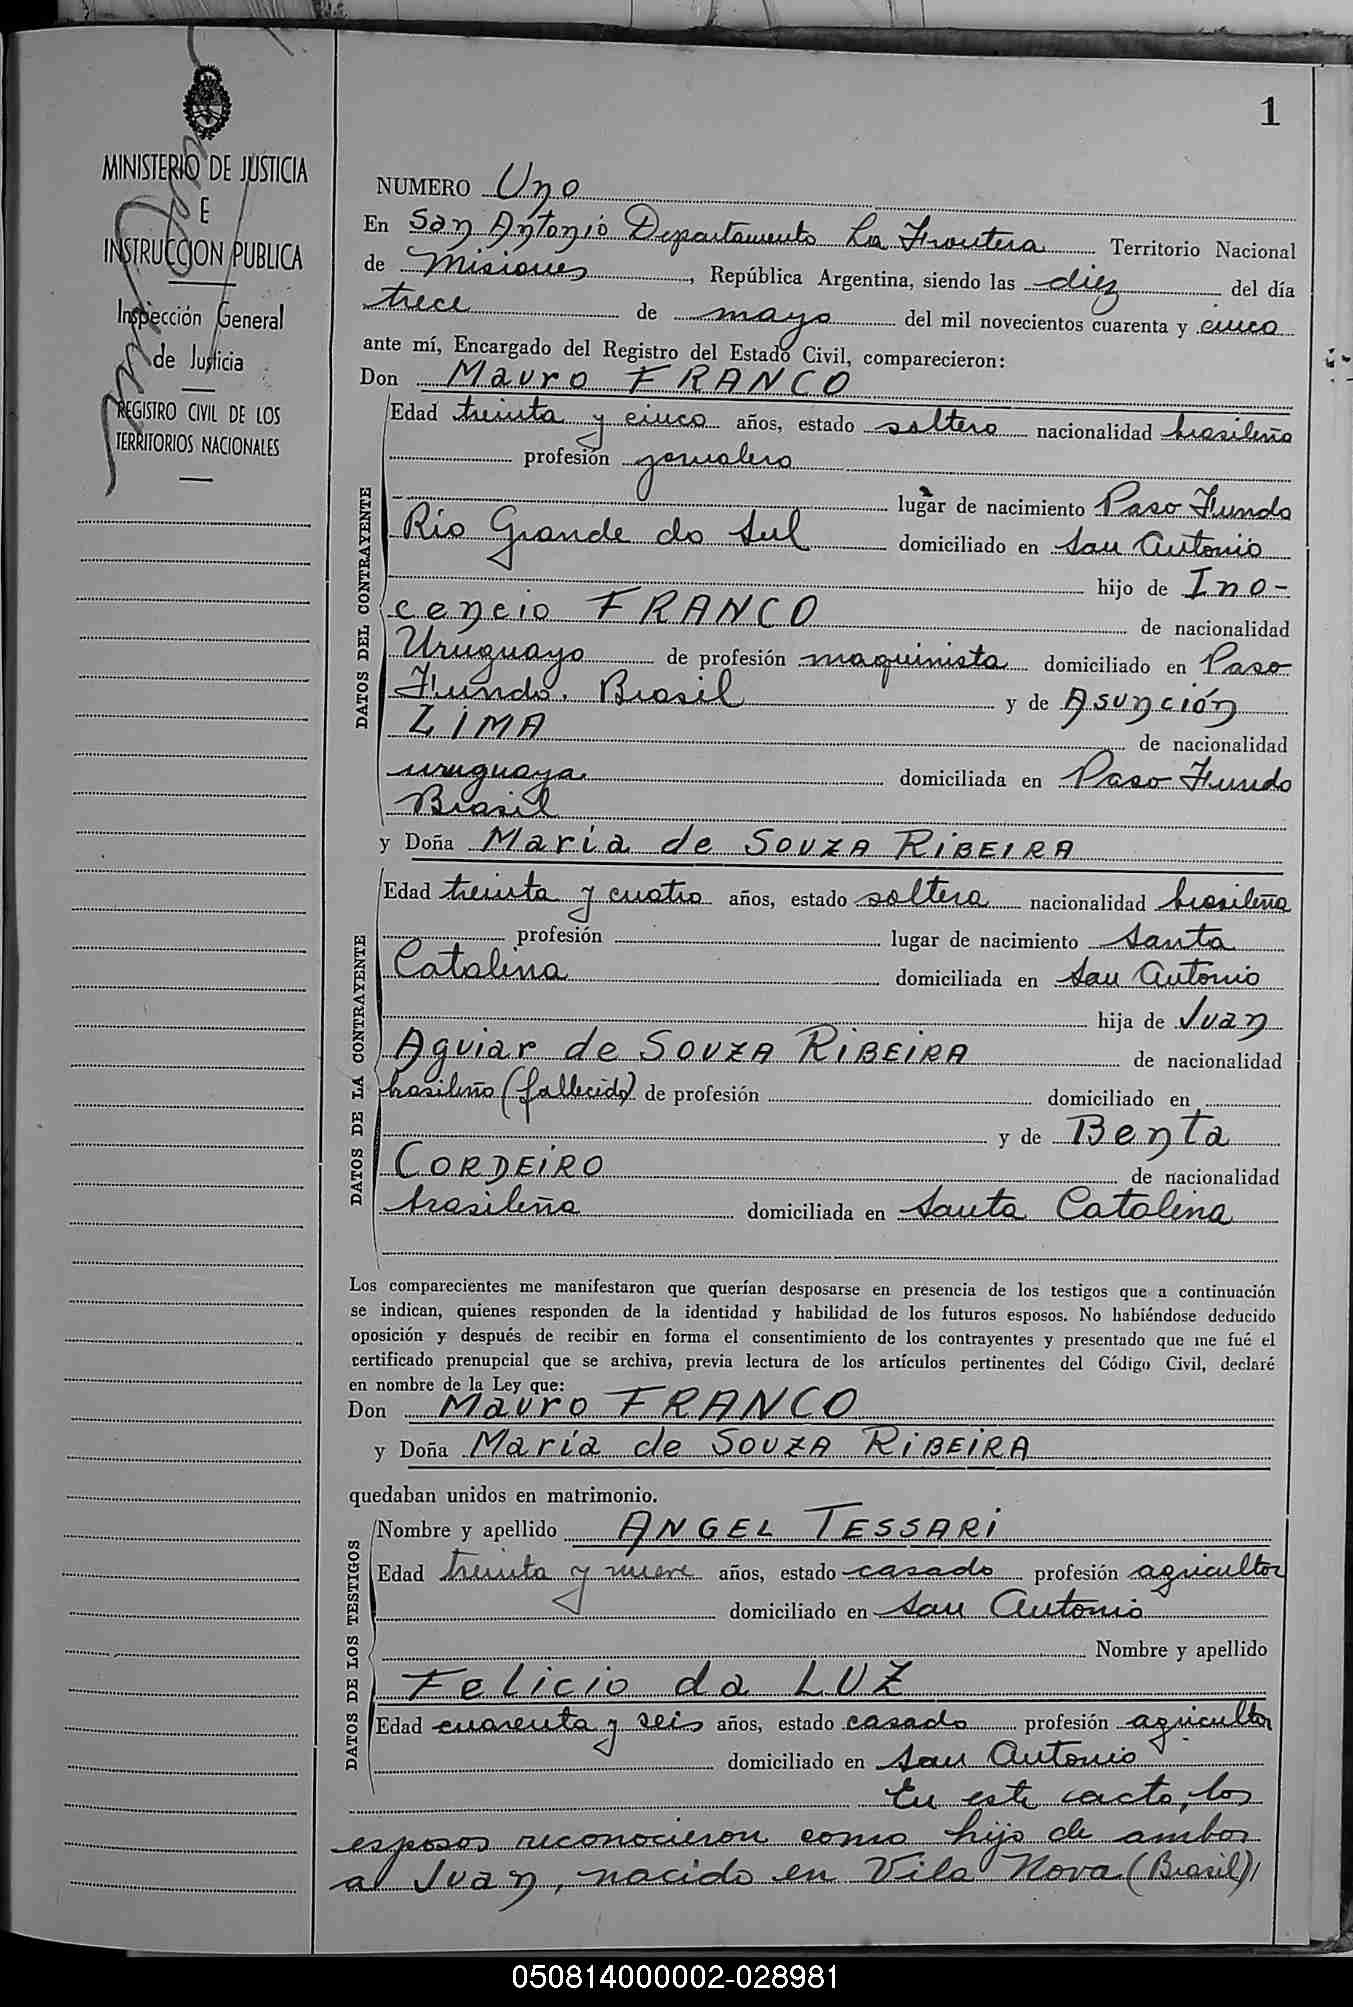 1
MINISTERIO DE JUSTICIA
E
INSTRUCCION PUBLICA
Inspección General
de Justicia
REGISTRO CIVIL DE LOS
TERRITORIOS NACIONALES
NUMERO Uno
En San Antonio Departamento La Frontera Territorio Nacional
de Misiones, República Argentina, siendo las diez del día
trece de mayo del mil novecientos cuarenta y cinco
ante mí, Encargado del Registro del Estado Civil, comparecieron:
Don Mauro FRANCO
DATOS DEL CONTRAYENTE
Edad treinta y cinco años, estado soltero nacionalidad brasileño
profesión jornalero
lugar de nacimiento Paso Fundo
Rio Grande do Sul domiciliado en San Antonio
hijo de Ino-
cencio FRANCO de nacionalidad
Uruguayo de profesión maquinista domiciliado en Paso
Fundo. Brasil y de Asunción
LIMA de nacionalidad
uruguaya domiciliada en Paso Fundo
Brasil
y Doña Maria de SOUZA RIBEIRA
DATOS DE LA CONTRAYENTE
Edad treinta y cuatro años, estado soltera nacionalidad brasileña
profesión lugar de nacimiento Santa
Catalina domiciliada en San Antonio
hija de Juan
Aguiar de SOUZA RIBEIRA de nacionalidad
brasileño (fallecido) de profesión domiciliado en
y de Benta
CORDEIRO de nacionalidad
brasileña domiciliada en Santa Catalina
Los comparecientes me manifestaron que querían desposarse en presencia de los testigos que a continuación
se indican, quienes responden de la identidad y habilidad de los futuros esposos. No habiéndose deducido
oposición y después de recibir en forma el consentimiento de los contrayentes y presentado que me fué el
certificado prenupcial que se archiva, previa lectura de los artículos pertinentes del Código Civil, declaré
en nombre de la Ley que:
Don Mauro FRANCO
y Doña María de SOUZA RIBEIRA
quedaban unidos en matrimonio.
DATOS DE LOS TESTIGOS
Nombre y apellido ANGEL TESSARI
Edad treinta y nueve años, estado casado profesión agricultor
domiciliado en San Antonio
Nombre y apellido
Felicio da LUZ
Edad cuarenta y seis años, estado casado profesión agricultor
domiciliado en San Antonio
En este acto, los
esposos reconocieron como hijo de ambos
a Juan, nacido en Vila Nova (Brasil),
050814000002-028981